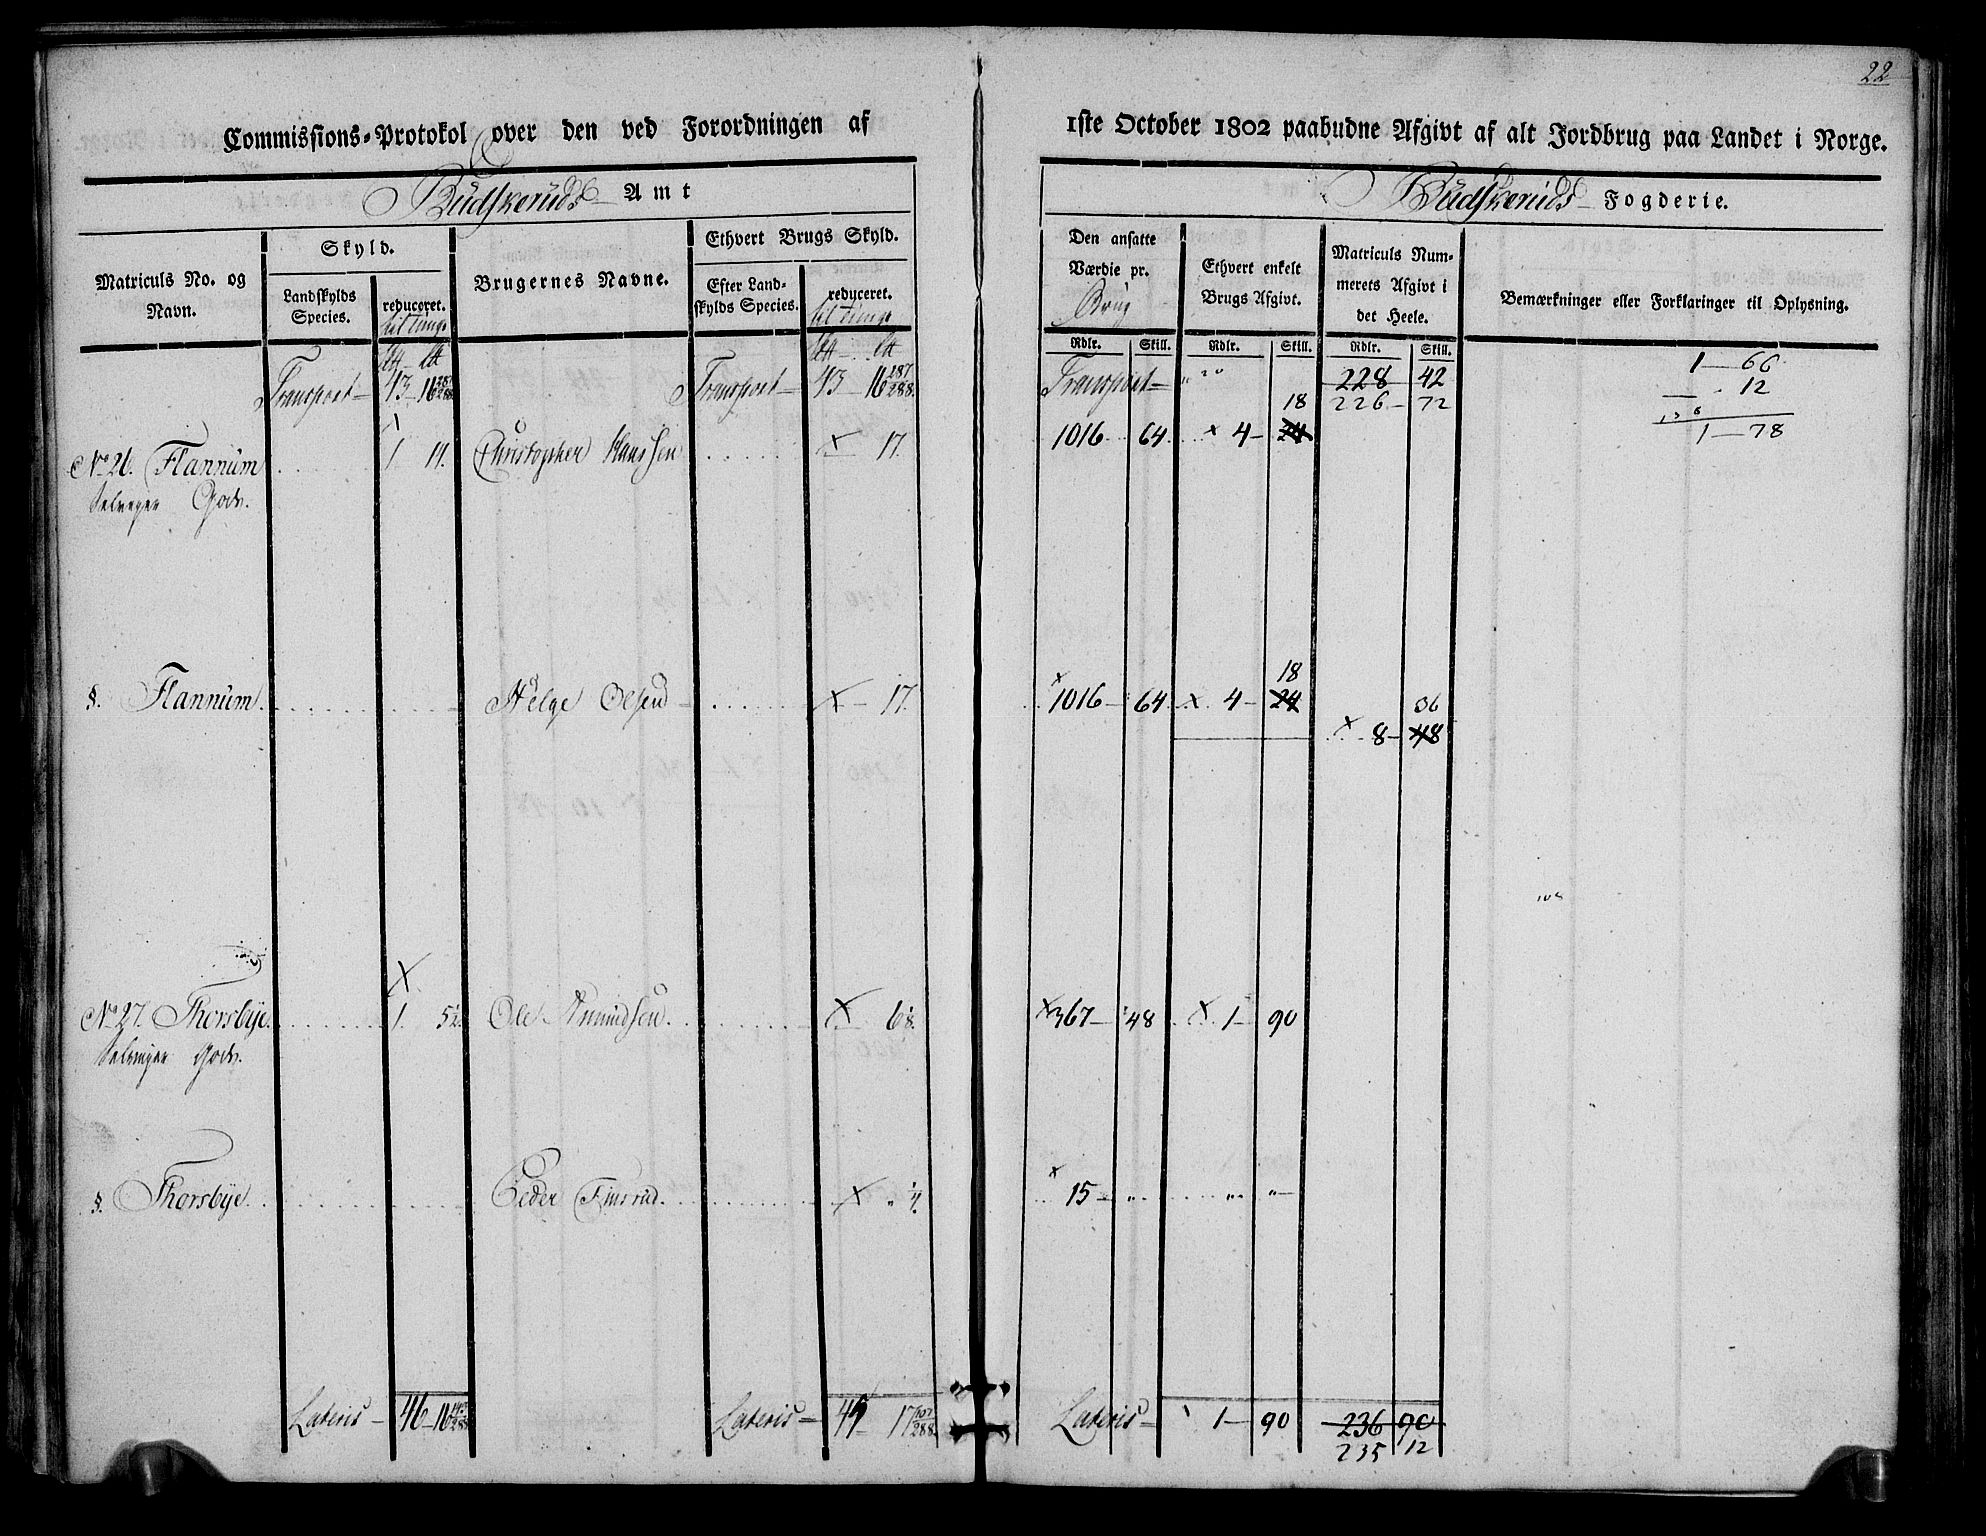 22
Commissions-Protokol over den ved Forordningen af 1ste October 1802 paabudne Afgivt af alt Jordbrug paa Landet i Norge.
Budskeruds Amt
Budskeruds Fogderie.
Matriculs No. og Navn.
Skyld.
Landskylds Species.
reduceret.
til tunge
Brugernes Navne.
Ethvert Brugs Skyld.
Efter Landskylds Species.
reduceret.
til tunge
Den ansatte Værdie pr. Brug
Ethvert enkelt Brugs Afgivt.
Matriculs Nummerets Afgivt i det Heele.
Bemærkninger eller Forklaringer til Oplysning.
Rdlr. Skill. Rdlr. Skill. Rdlr. Skill.
Transport— 43—16 287/288 Transport— 43—16 287/288 Transport— 228 42
226— 72
1—66
12
1—78
No 26. Flannum 1 Christopher Hanssen 17. 1016 64 4— 24
18
Godv.
§. Flannum Helge Olsen 17. 1016— 64 4— 24
18
8— 48
36
No 27. Thorsbye 1. 5½ Ole Amundsen 6⅛ 367— 48 1— 90
Godv.
§. Thorsbye Peder Finsrud ¼ 15— „ „ „—
Lateris— 46—16 Lateris— 17 107/288 Lateris— 1— 90 236 90
235 12